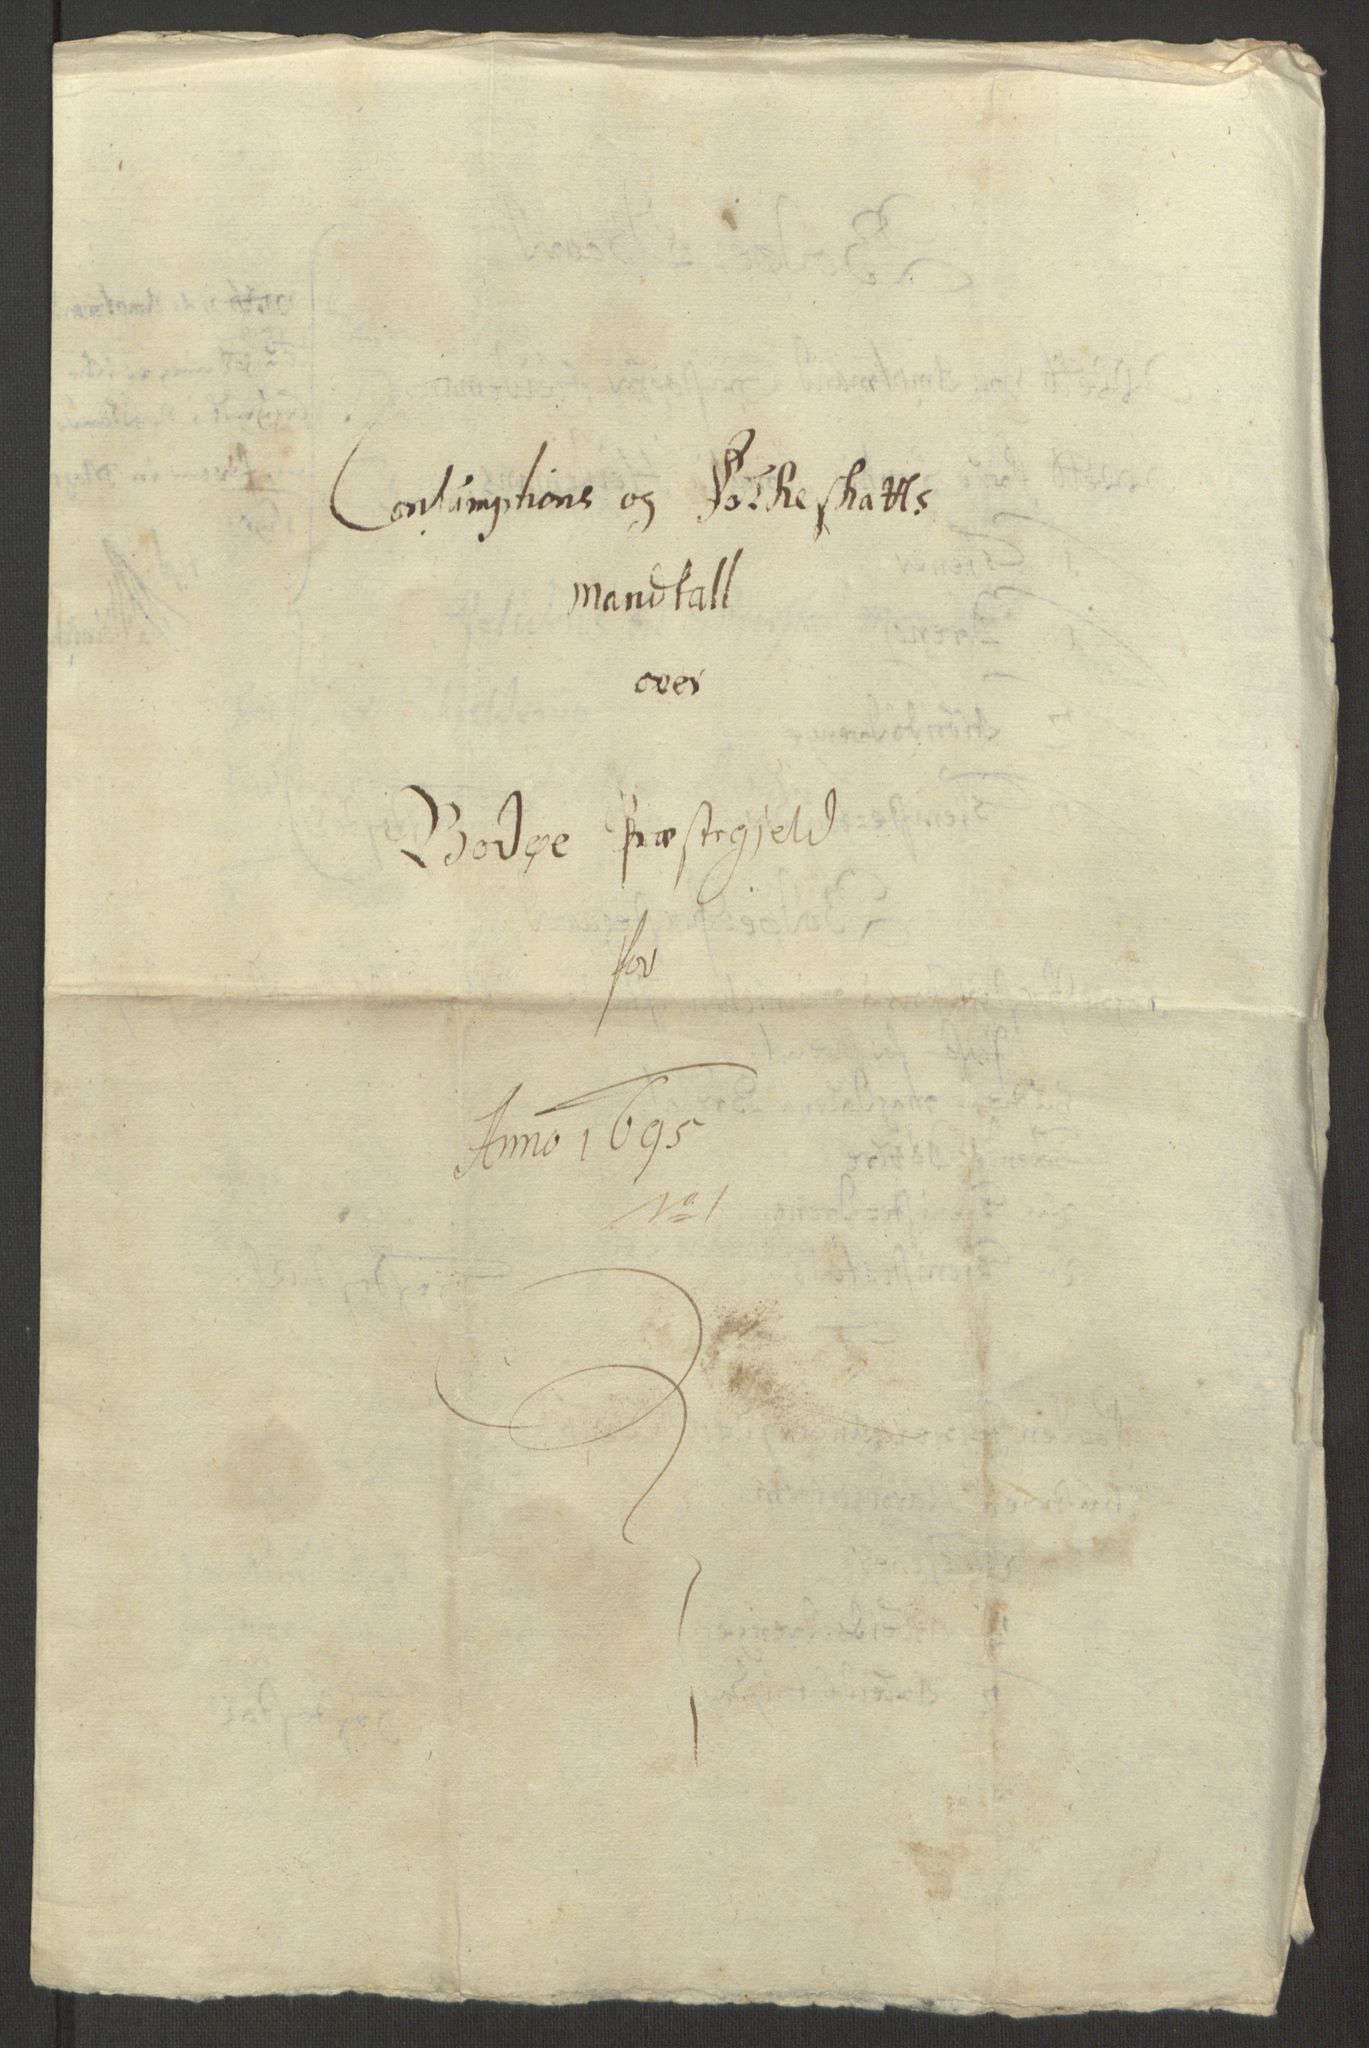 Consumptions og Folkeskatts
mandtall
over
Bodøe præstegield
for
Anno 1695
No 1